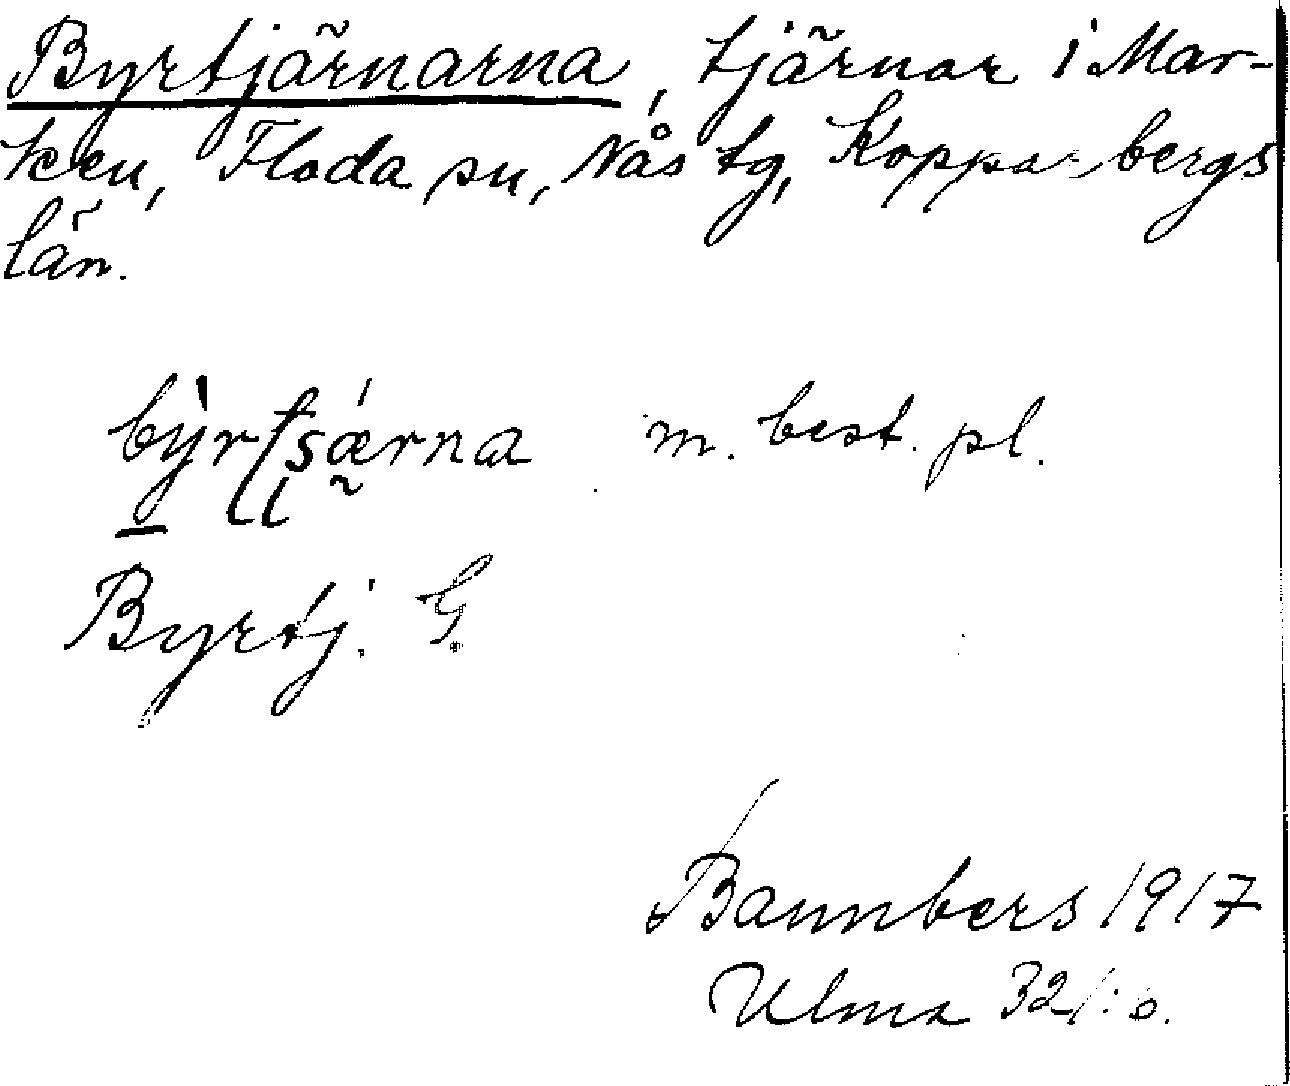 Byrtjärnarna, tjärnar i Mar-
ken, Floda sn, Nås tg, Kopparbergs
län.
m. best. pl.
Byrtj. G.
Bannbers 1917
Ulma 321:6.